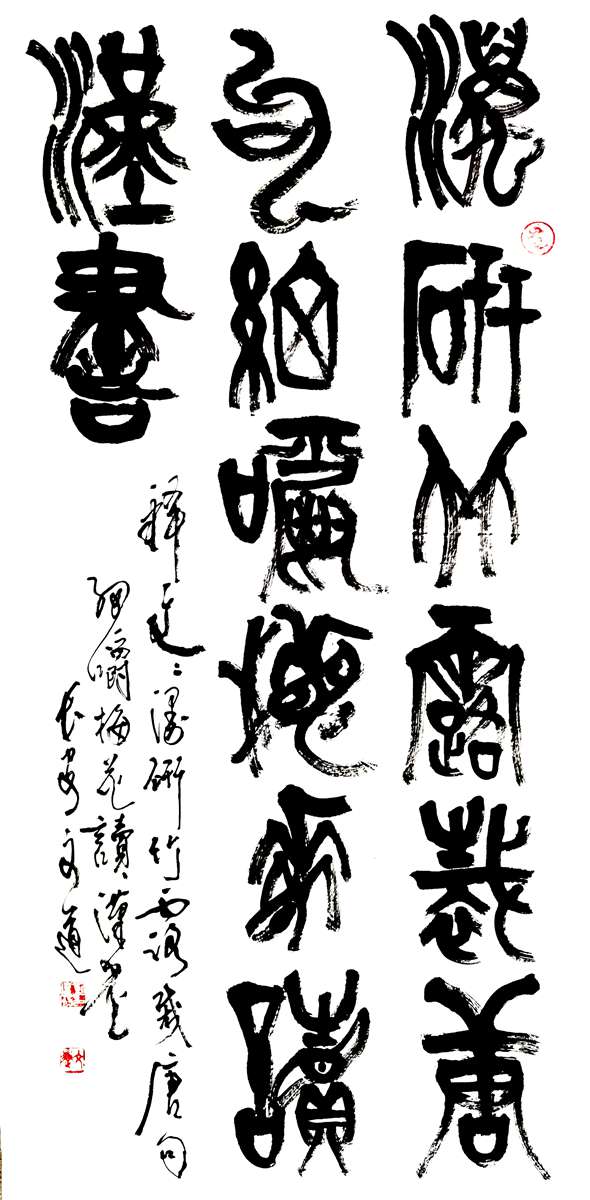 漫研竹露裁唐
句細嚼梅花讀
漢書
釋文：漫研竹露裁唐句
細嚼梅花讀漢書
长安文道